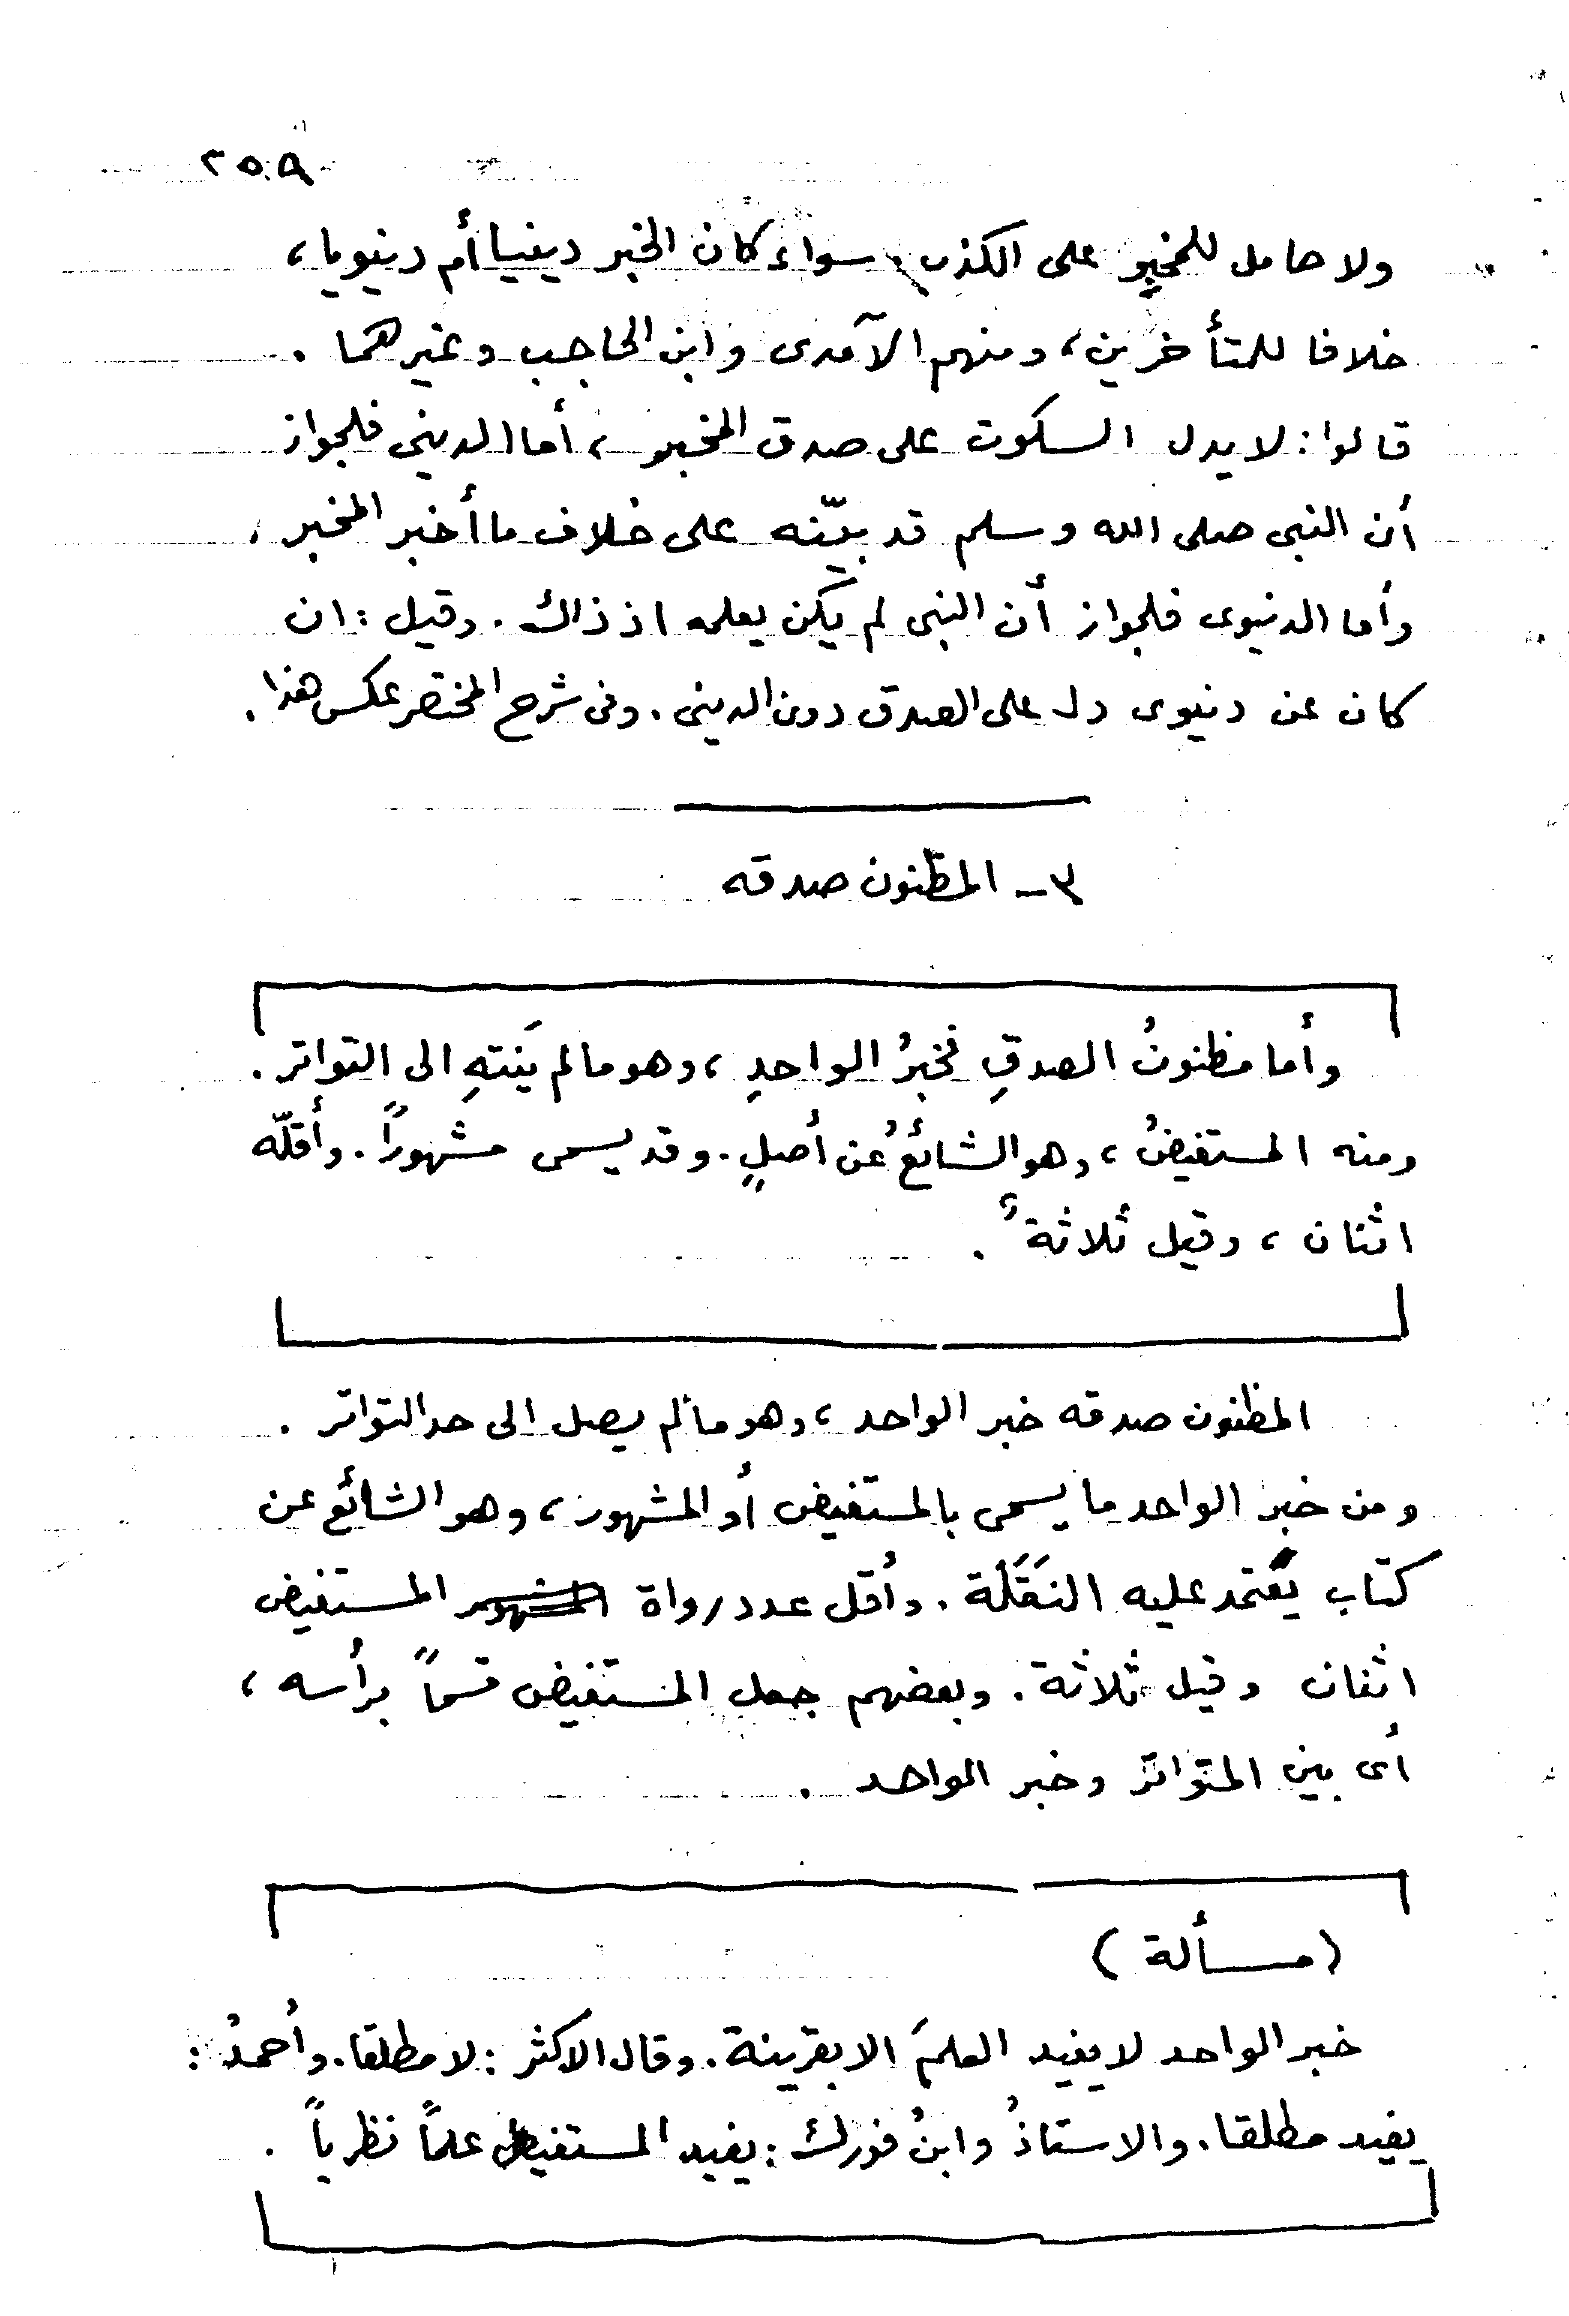 ٢٥٩
ولا حامل للمخبر على الكذب، سواء كان الخبر دينيا أم دنيويا،
خلافا للمتأخرين، ومنهم الآمدى وابن الحاجب وغيرهما .
قالوا: لا يدل السكوت على صدق المخبر، أما الدينى فلجواز
أن النبى صلى الله وسلم قد بيّنه على خلاف ما أخبر المخبر،
وأما الدنيوى فلجواز أن النبى لم يكن يعلمه اذ ذاك. وقيل: ان
كان عن دنيوى دل على الصدق دون الدينى. وفى شرح المختصر عكس هذا.
٣- المظنون صدقه
وأما مظنونُ الصدقِ فخبرُ الواحدِ، وهو ما لم يَنتهِ الى التواتر.
ومنه المستفيضُ، وهو الشائعُ عن أصلٍ. وقد يسمى مشهوراً. وأقلّه
اثنان، وقيل ثلاثةٌ.
المظنون صدقه خبر الواحد، وهو ما لم يصل الى حد التواتر.
ومن خبر الواحد ما يسمى بالمستفيض أو المشهور، وهو الشائع عن
كتاب يَعتمد عليه النَقَلَة. وأقل عدد رواة المستفيض
اثنان وقيل ثلاثة. وبعضهم جعل المستفيض قسماً برأسه،
أى بين المتواتر وخبر الواحد.
(مسألة)
خبر الواحد لا يفيد العلمَ الا بقرينة. وقال الاكثر: لا مطلقا. وأحمدُ:
يفيد مطلقا. والاستاذُ وابنُ فورك: يفيد المستفيض علماً نظرياً.